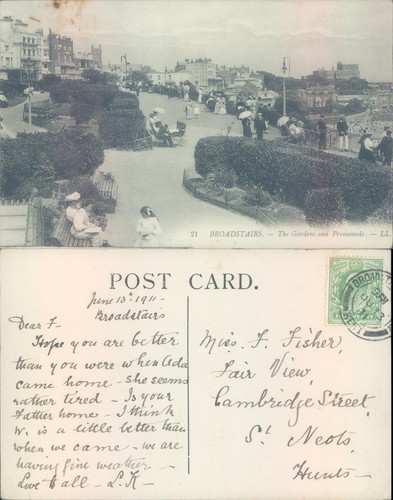 21 BROADSTAIRS. – The Gardens and Promenade. – LL.
POST CARD.
June 13th 1911 –
Broadstairs
Dear F –
Hope you are better
than you were when Ada
came home – she seems
rather tired – Is your
Father home – I think
W. is a little better than
when we came – we are
having fine weather –
Love to all – L.K –
Miss. F. Fisher,
Fair View,
Cambridge Street,
St. Neots,
Hunts –
BROADSTAIRS